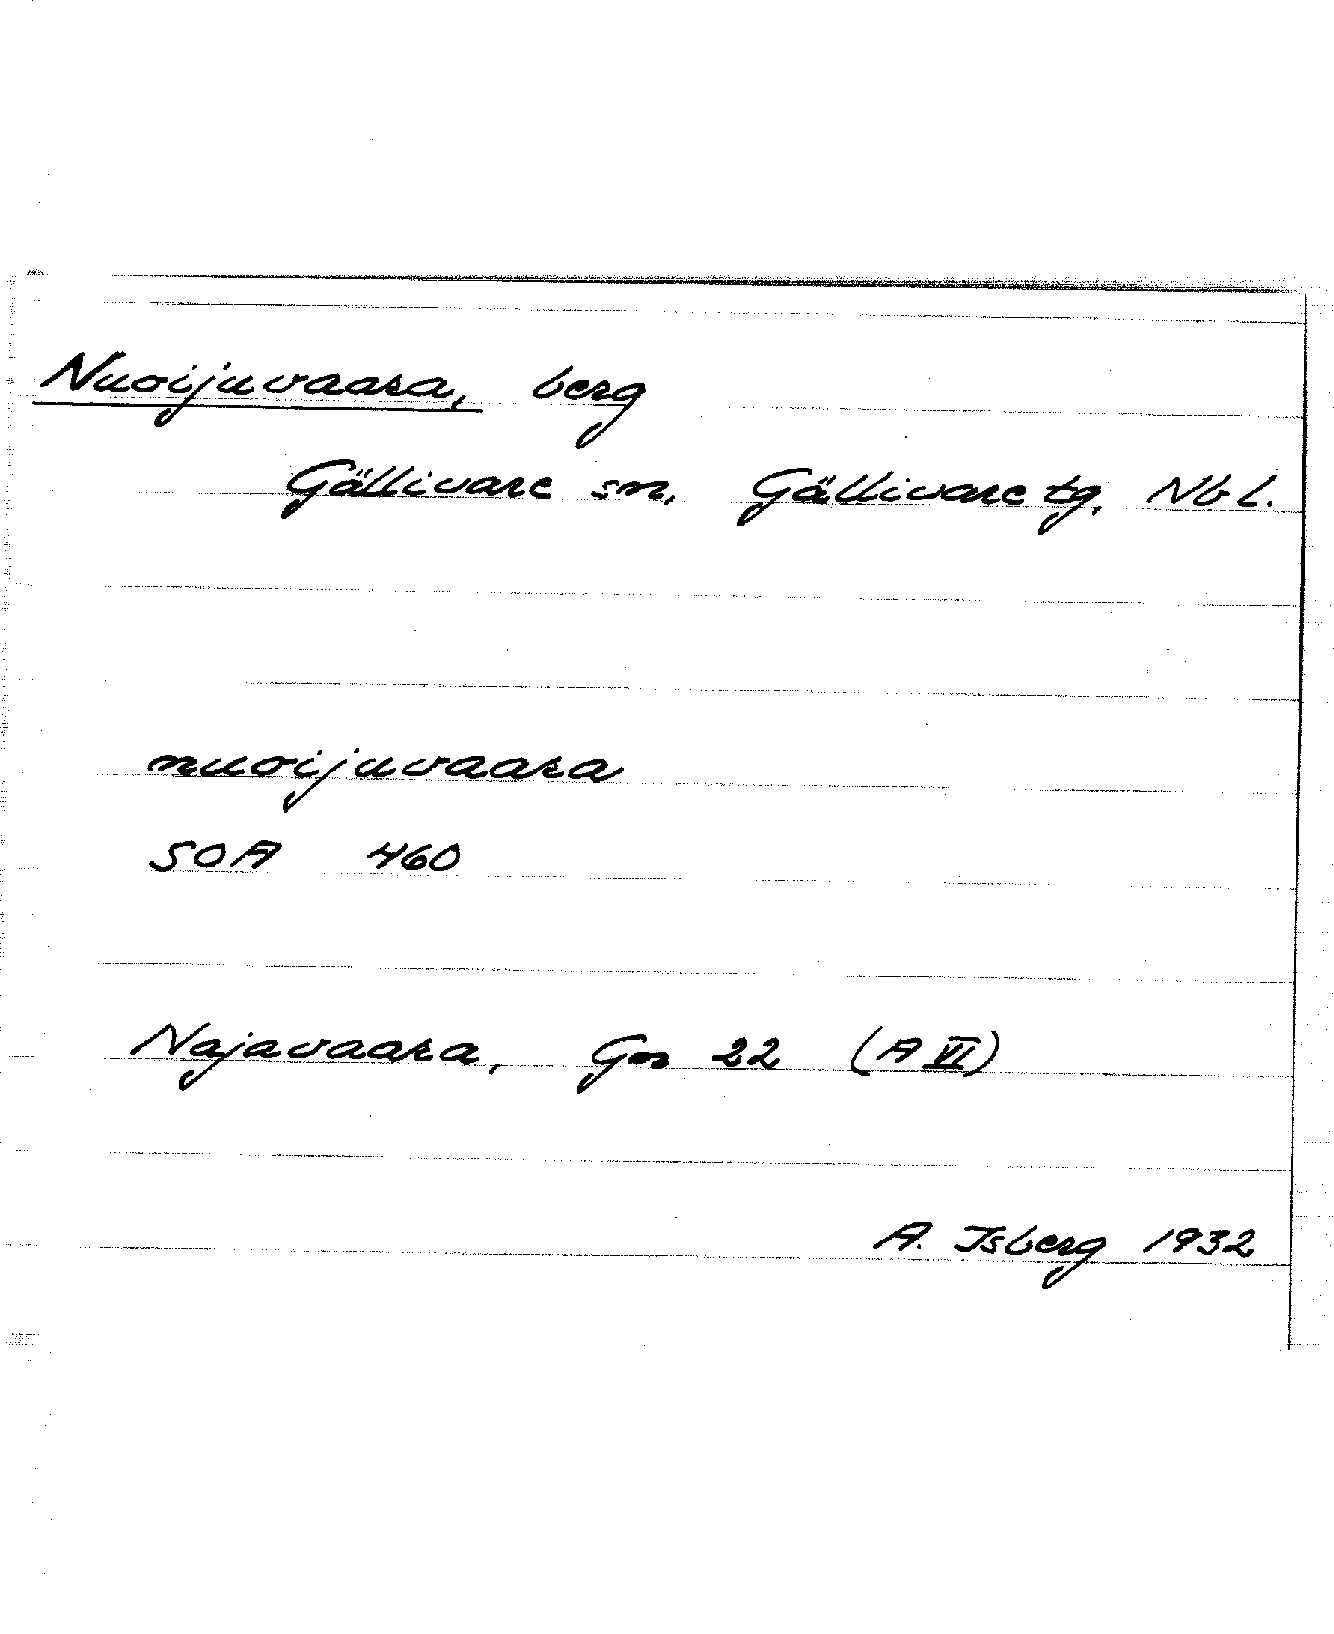 Nuoijuvaara, berg
Gällivare sn, Gällivare tg, Nb l.
nuoijuvaara
SOA 460
Najavaara, Gm 22 (A VI)
A. Isberg 1932